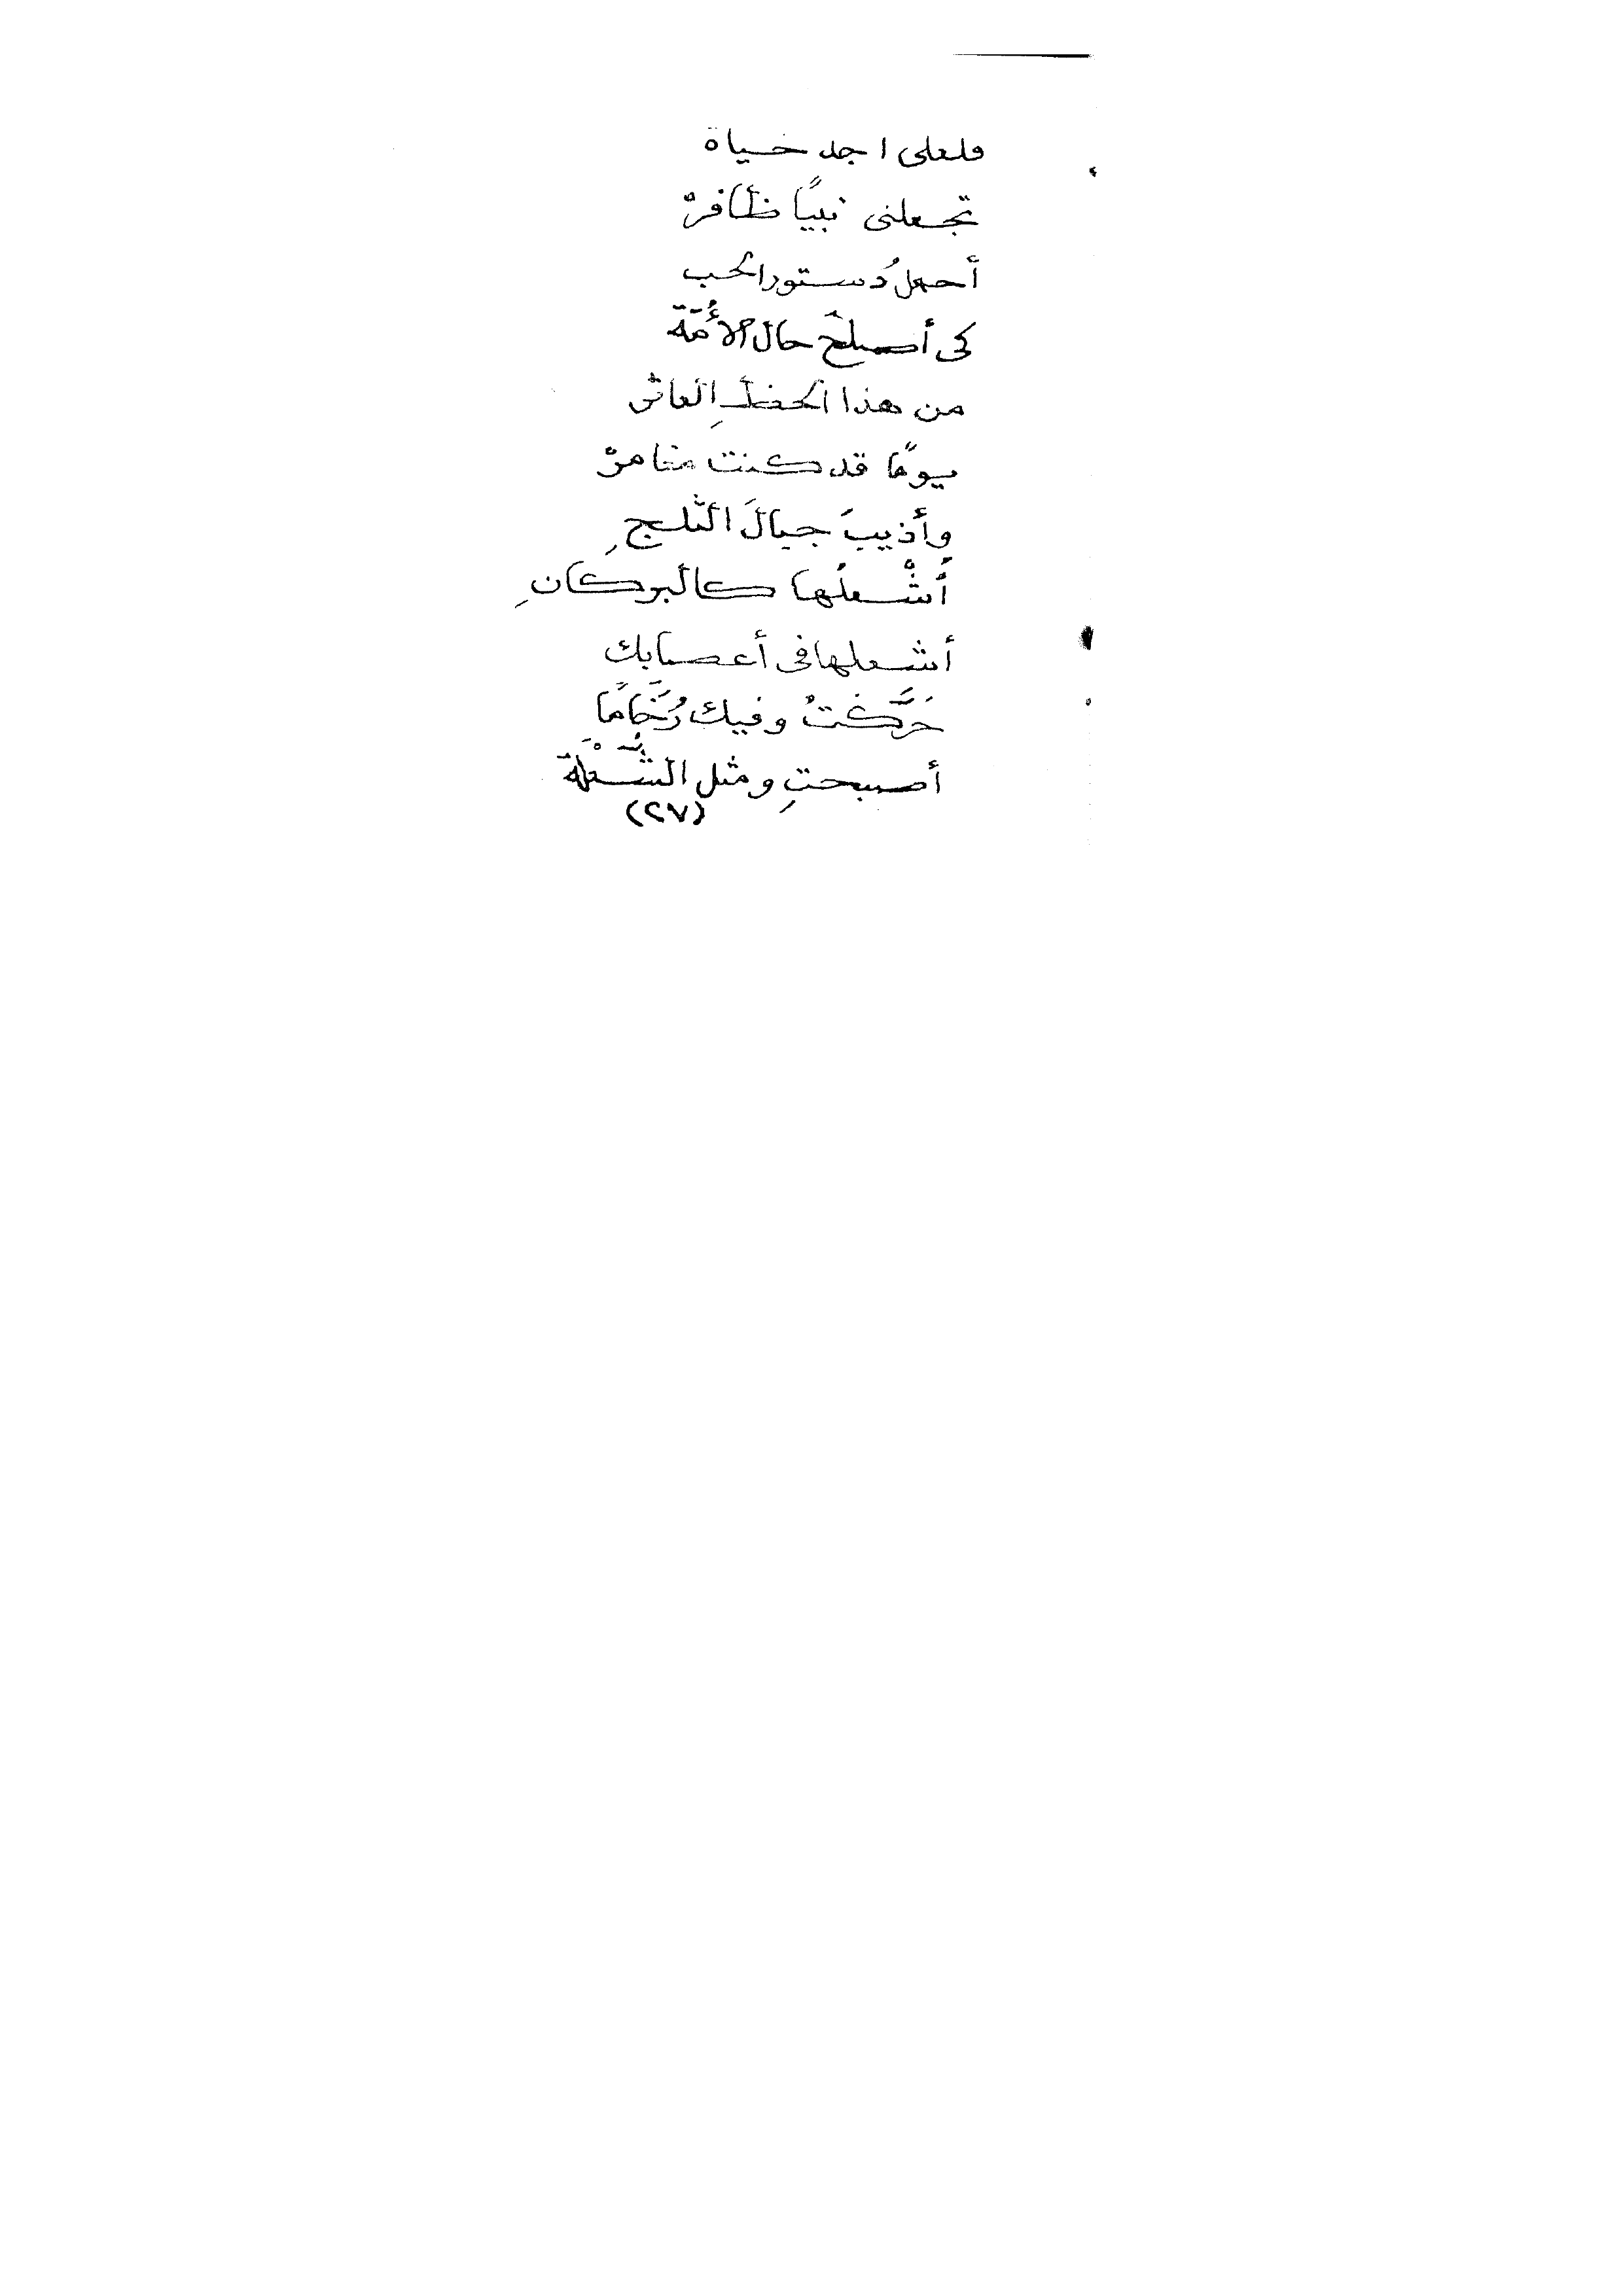 فلعلى اجد حياة
تجعلنى نبيًا ظافرْ
أحملُ دستور الحب
كى أصلحَ حال الأُمَّة
من هذا الحظِ العاثر
يومًا قد كنت مغامرْ
وأذيبَ جبالَ الثلجِ
أُشْعلُها كالبركانِ
أشعلها فى أعصابك
حَرَّكْتُ وفيك رُخَامًا
أصبحتِ ومثل الشُّعْلَة
(٢٧)